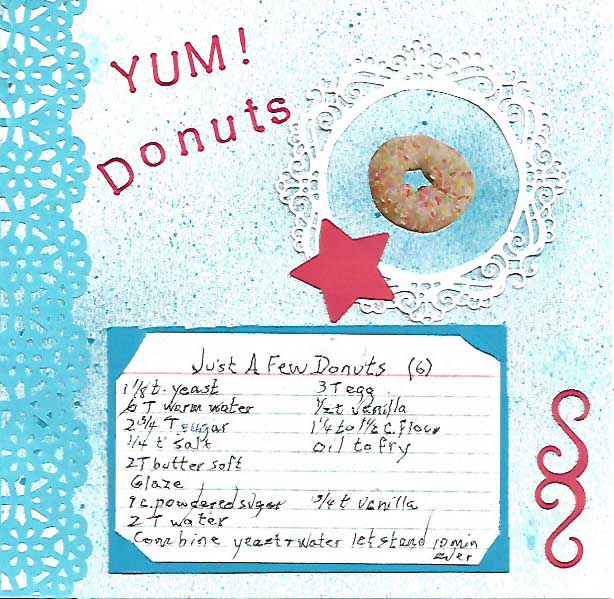 YUM!
Donuts
Just A Few Donuts (6)
1 1/8 t. yeast 3 T egg
6 T warm water 1/2 t vanilla
2 3/4 T sugar 1 1/4 to 1 1/2 c. flour
1/4 t salt oil to fry
2 T butter soft
Glaze
1 c. powdered sugar 3/4 t vanilla
2 T water
Combine yeast + water let stand 10 min
over